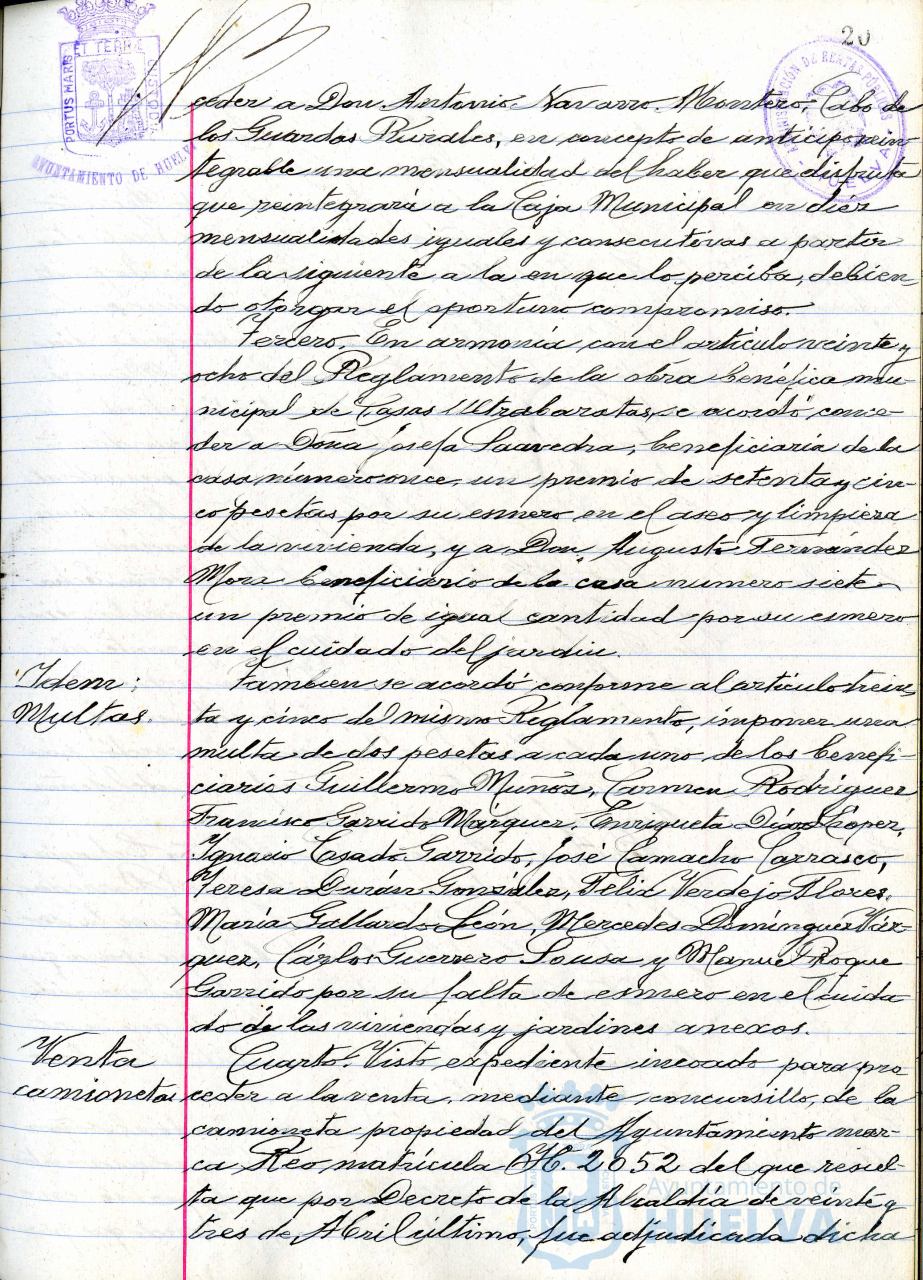 20
PORTUS MARIS ET TERRAE CUSTODIA
AYUNTAMIENTO DE HUELVA
ADMINISTRACIÓN DE RENTAS PÚBLICAS
HUELVA
ceder a Don Antonio Navarro Montero, Cabo de
los Guardas Rurales, en concepto de anticipo rein
tegrable una mensualidad del haber que disfruta
que reintegrará a la Caja Municipal en diez
mensualidades iguales y consecutivas a partir
de la siguiente a la en que lo perciba, debien-
do otorgar el oportuno compromiso.
Tercero. En armonía con el artículo veinte y
ocho del Reglamento de la obra benéfica mu-
nicipal de Casas Ultrabaratas, se acordó, conce-
der a Doña Josefa Saavedra, beneficiaria de la
casa número once, un premio de setenta y cin-
co pesetas por su esmero en el aseo y limpieza
de la vivienda, y a Don Augusto Fernández
Mora beneficiario de la casa numero siete
un premio de igual cantidad por su esmero
en el cuidado del jardin.
Idem:
Multas.
Tambien se acordó conforme al artículo trein-
ta y cinco del mismo Reglamento, imponer una
multa de dos pesetas a cada uno de los benefi-
ciarios Guillermo Muñoz, Carmen Rodríguez
Francisco Garrido Márquez, Enriqueta Díaz López,
Ignacio Casado Garrido, José Camacho Carrasco,
Teresa Durán González, Félix Verdejo Flores,
María Gallardo León, Mercedes Domínguez Váz-
quez, Cárlos Guerrero Sousa y Manuel Roque
Garrido por su falta de esmero en el cuida-
do de las viviendas y jardines anexos.
Venta
camionetas
Cuarto. Visto expediente incoado para pro
ceder a la venta, mediante concursillo, de la
camioneta propiedad del Ayuntamiento mar-
ca Reo matrícula H. 2052 del que resul-
ta que por Decreto de la Alcaldía de veinte y
tres de Abril último, fue adjudicada dicha
Ayuntamiento de
HUELVA